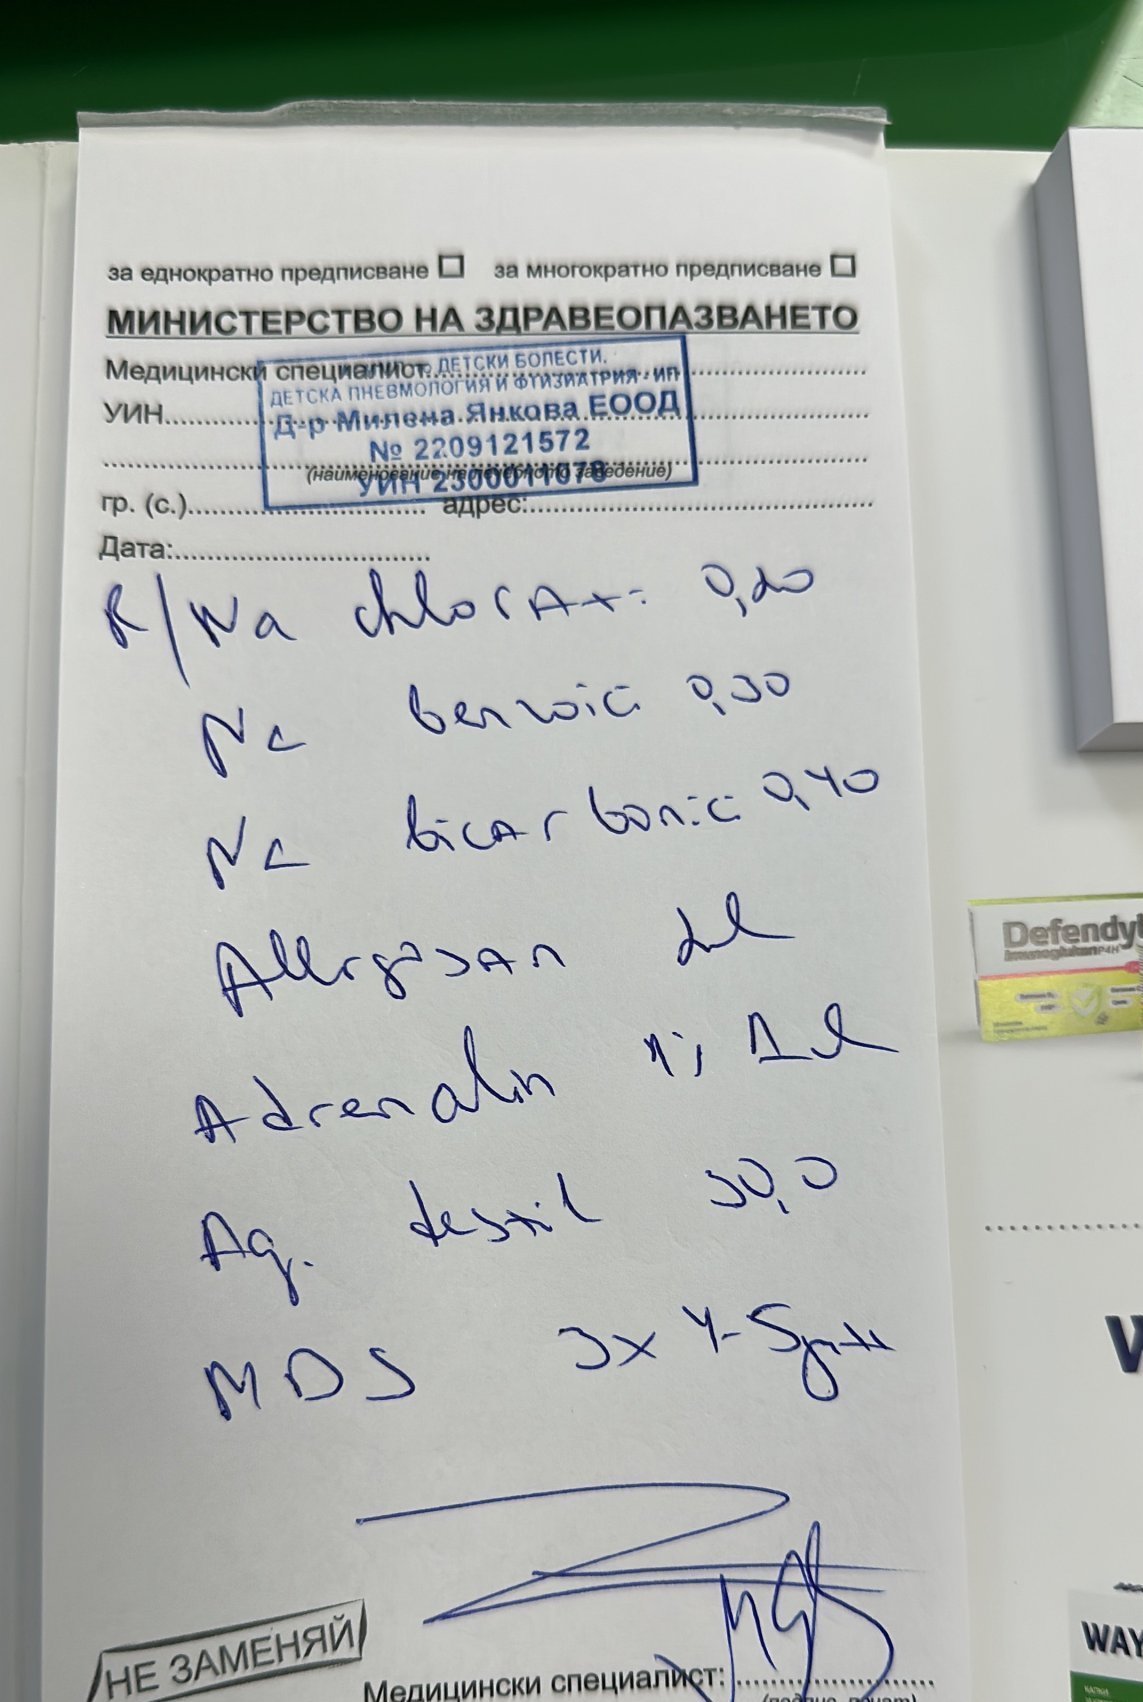 за еднократно предписване за многократно предписване
МИНИСТЕРСТВО НА ЗДРАВЕОПАЗВАНЕТО
Медицински специалист
ДЕТСКИ БОЛЕСТИ.
ДЕТСКА ПНЕВМОЛОГИЯ И ФТИЗИАТРИЯ - ИП
УИН
Д-р Милена Янкова ЕООД
№ 2209121572
УИН 2300011078
гр. (с.) адрес:
Дата:
R/ Na chlorat: 0,20
Na benzoici 0,30
Na bicarbonici 0,40
Allergosan
Adrenalin
Aq. destil 30,0
MDS 3x 4-5gtt
НЕ ЗАМЕНЯЙ
Медицински специалист:
Defendyl
Imunoglukan P4H
WAY